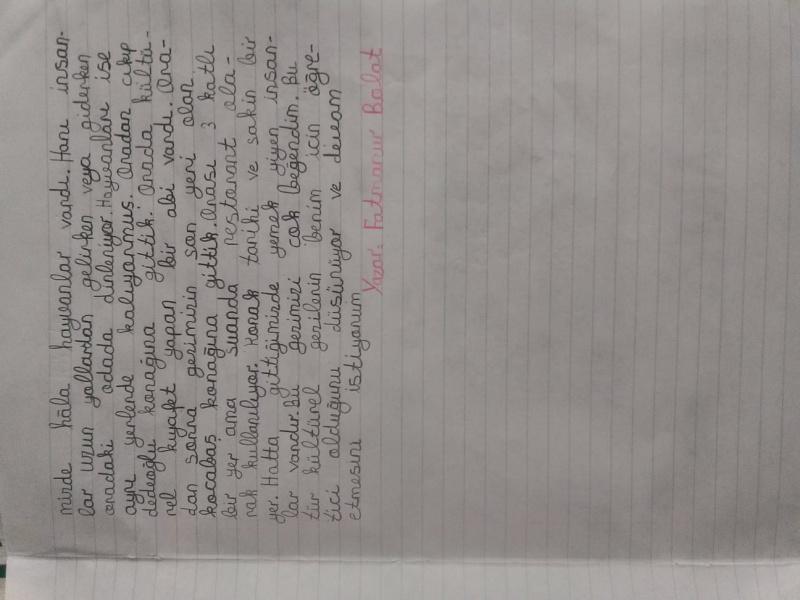 mizde hâla hayvanlar vardı. Hanı insan-
lar uzun yollardan gelirken veya giderken
oradaki odada dinleniyor. Hayvanları ise
ayrı yerlerde kalıyormuş. Oradan cıkıp
dedeoğlu konağına gittik. Orada kültü-
rel kıyafet yapan bir abi vardı. Ora-
dan sonra gezimizin son yeri olan
kocabaş konağına gittik. Orası 3 katlı
bir yer ama suanda restorant ola-
rak kullanılıyor. Konak tarihi ve sakin bir
yer. Hatta gittiğimizde yemek yiyen insan-
lar vardır. Bu gezimizi cok beğendim. Bu
tür kültürel gezilerin benim icin öğre-
tici olduğunu düsünüyor ve devam
etmesini istiyorum
Yazar: Fatmanur Bolat